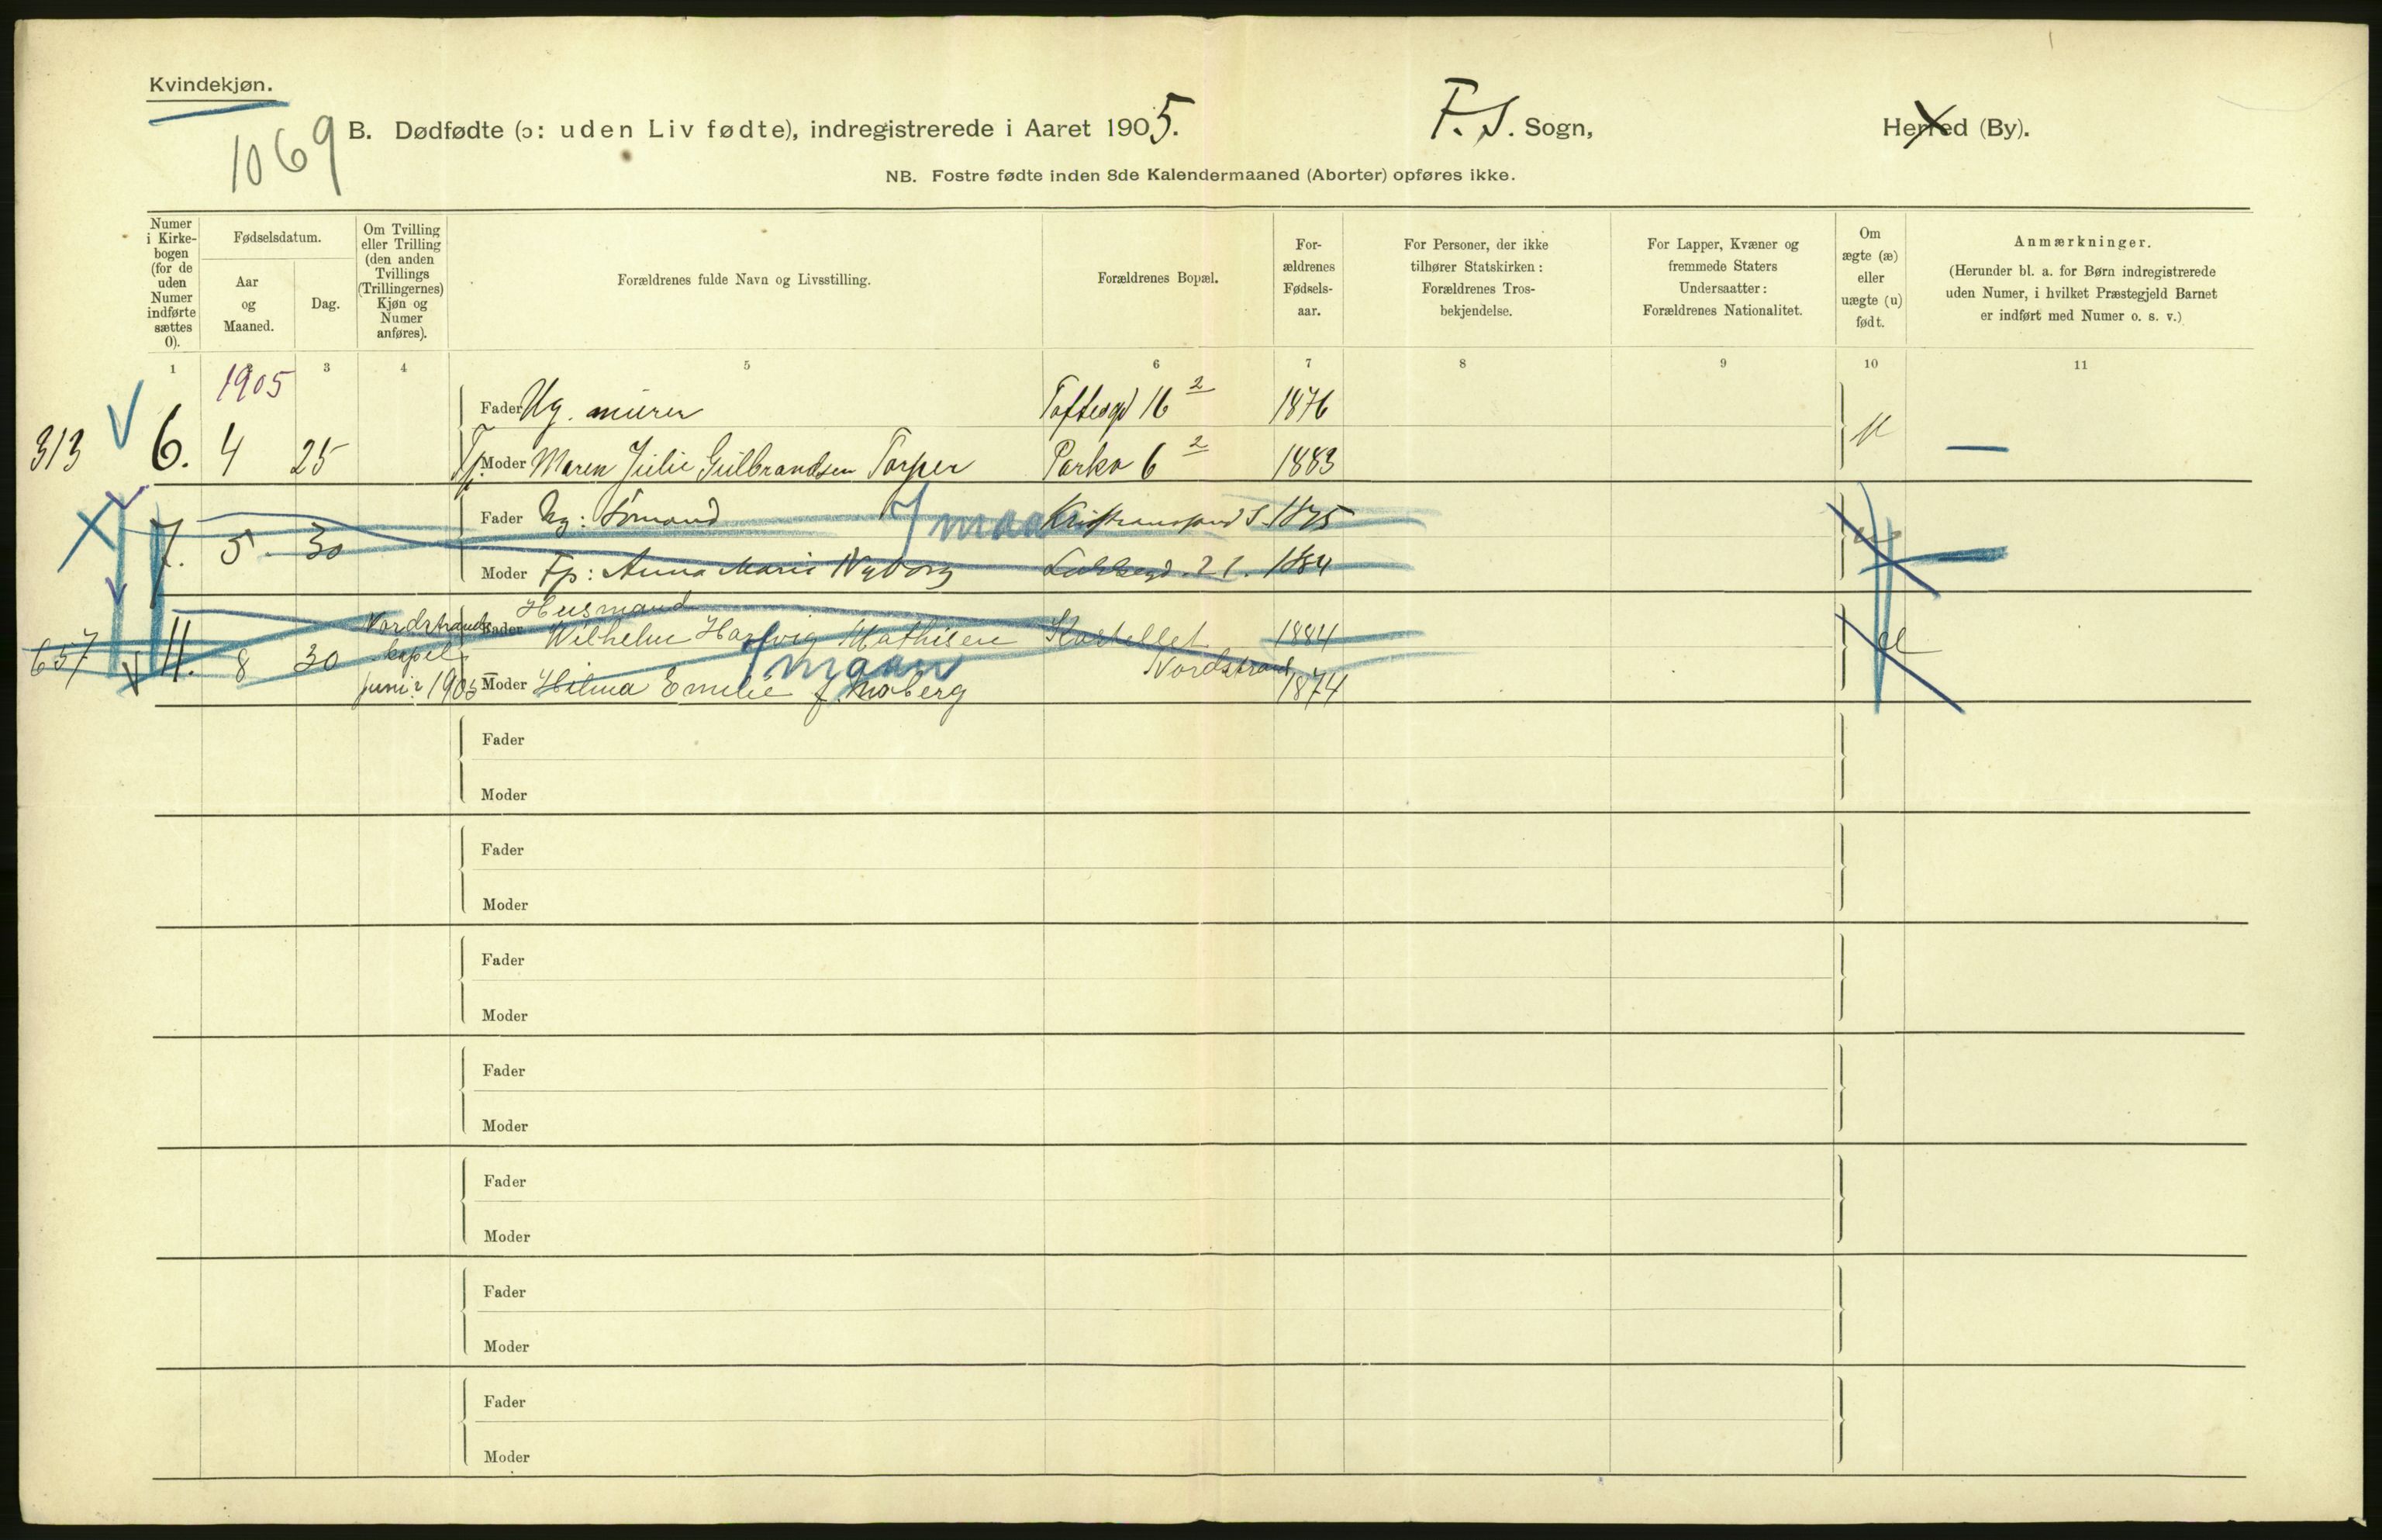 Kvindekjøn.
1069
B. Dødfødte (ɔ: uden Liv fødte), indregistrerede i Aaret 1905.
F. S. Sogn,
Herred (By).
NB. Fostre fødte inden 8de Kalendermaaned (Aborter) opføres ikke.
Numer i Kirke-bogen (for de uden Numer indførte sættes 0).
Fødselsdatum.
Aar og Maaned.
Dag.
Om Tvilling eller Trilling (den anden Tvillings (Trillingernes) Kjøn og Numer anføres).
Forældrenes fulde Navn og Livsstilling.
Forældrenes Bopæl.
For-ældrenes Fødsels-aar.
For Personer, der ikke tilhører Statskirken: Forældrenes Tros-bekjendelse.
For Lapper, Kvæner og fremmede Staters Undersaatter: Forældrenes Nationalitet.
Om ægte (æ) eller uægte (u) født.
Anmærkninger.
(Herunder bl. a. for Børn indregistrerede uden Numer, i hvilket Præstegjeld Barnet er indført med Numer o. s. v.)
1 2 3 4 5 6 7 8 9 10 11
1905
Fader Ug. murer Toftesgd 16 2 1876
313 6. 4 25 Moder Maren Julie Gulbrandsen Torper Parkv 6 2 1883 u —
Fader Ug: Sömand 7 maan Kristianssand S. 1875
7. 5 30 Moder Tp: Anna Marie Nyborg 21. 1884 u
Husmand
Nordstrands Fader Wilhelm Hartvig Mathisen Kastellet 1884
657 11. 8 30 kapel 7 maan Nordstrand
juni 1905 Moder Hilma Emilie f. Moberg 1874
Fader
Moder
Fader
Moder
Fader
Moder
Fader
Moder
Fader
Moder
Fader
Moder
Fader
Moder